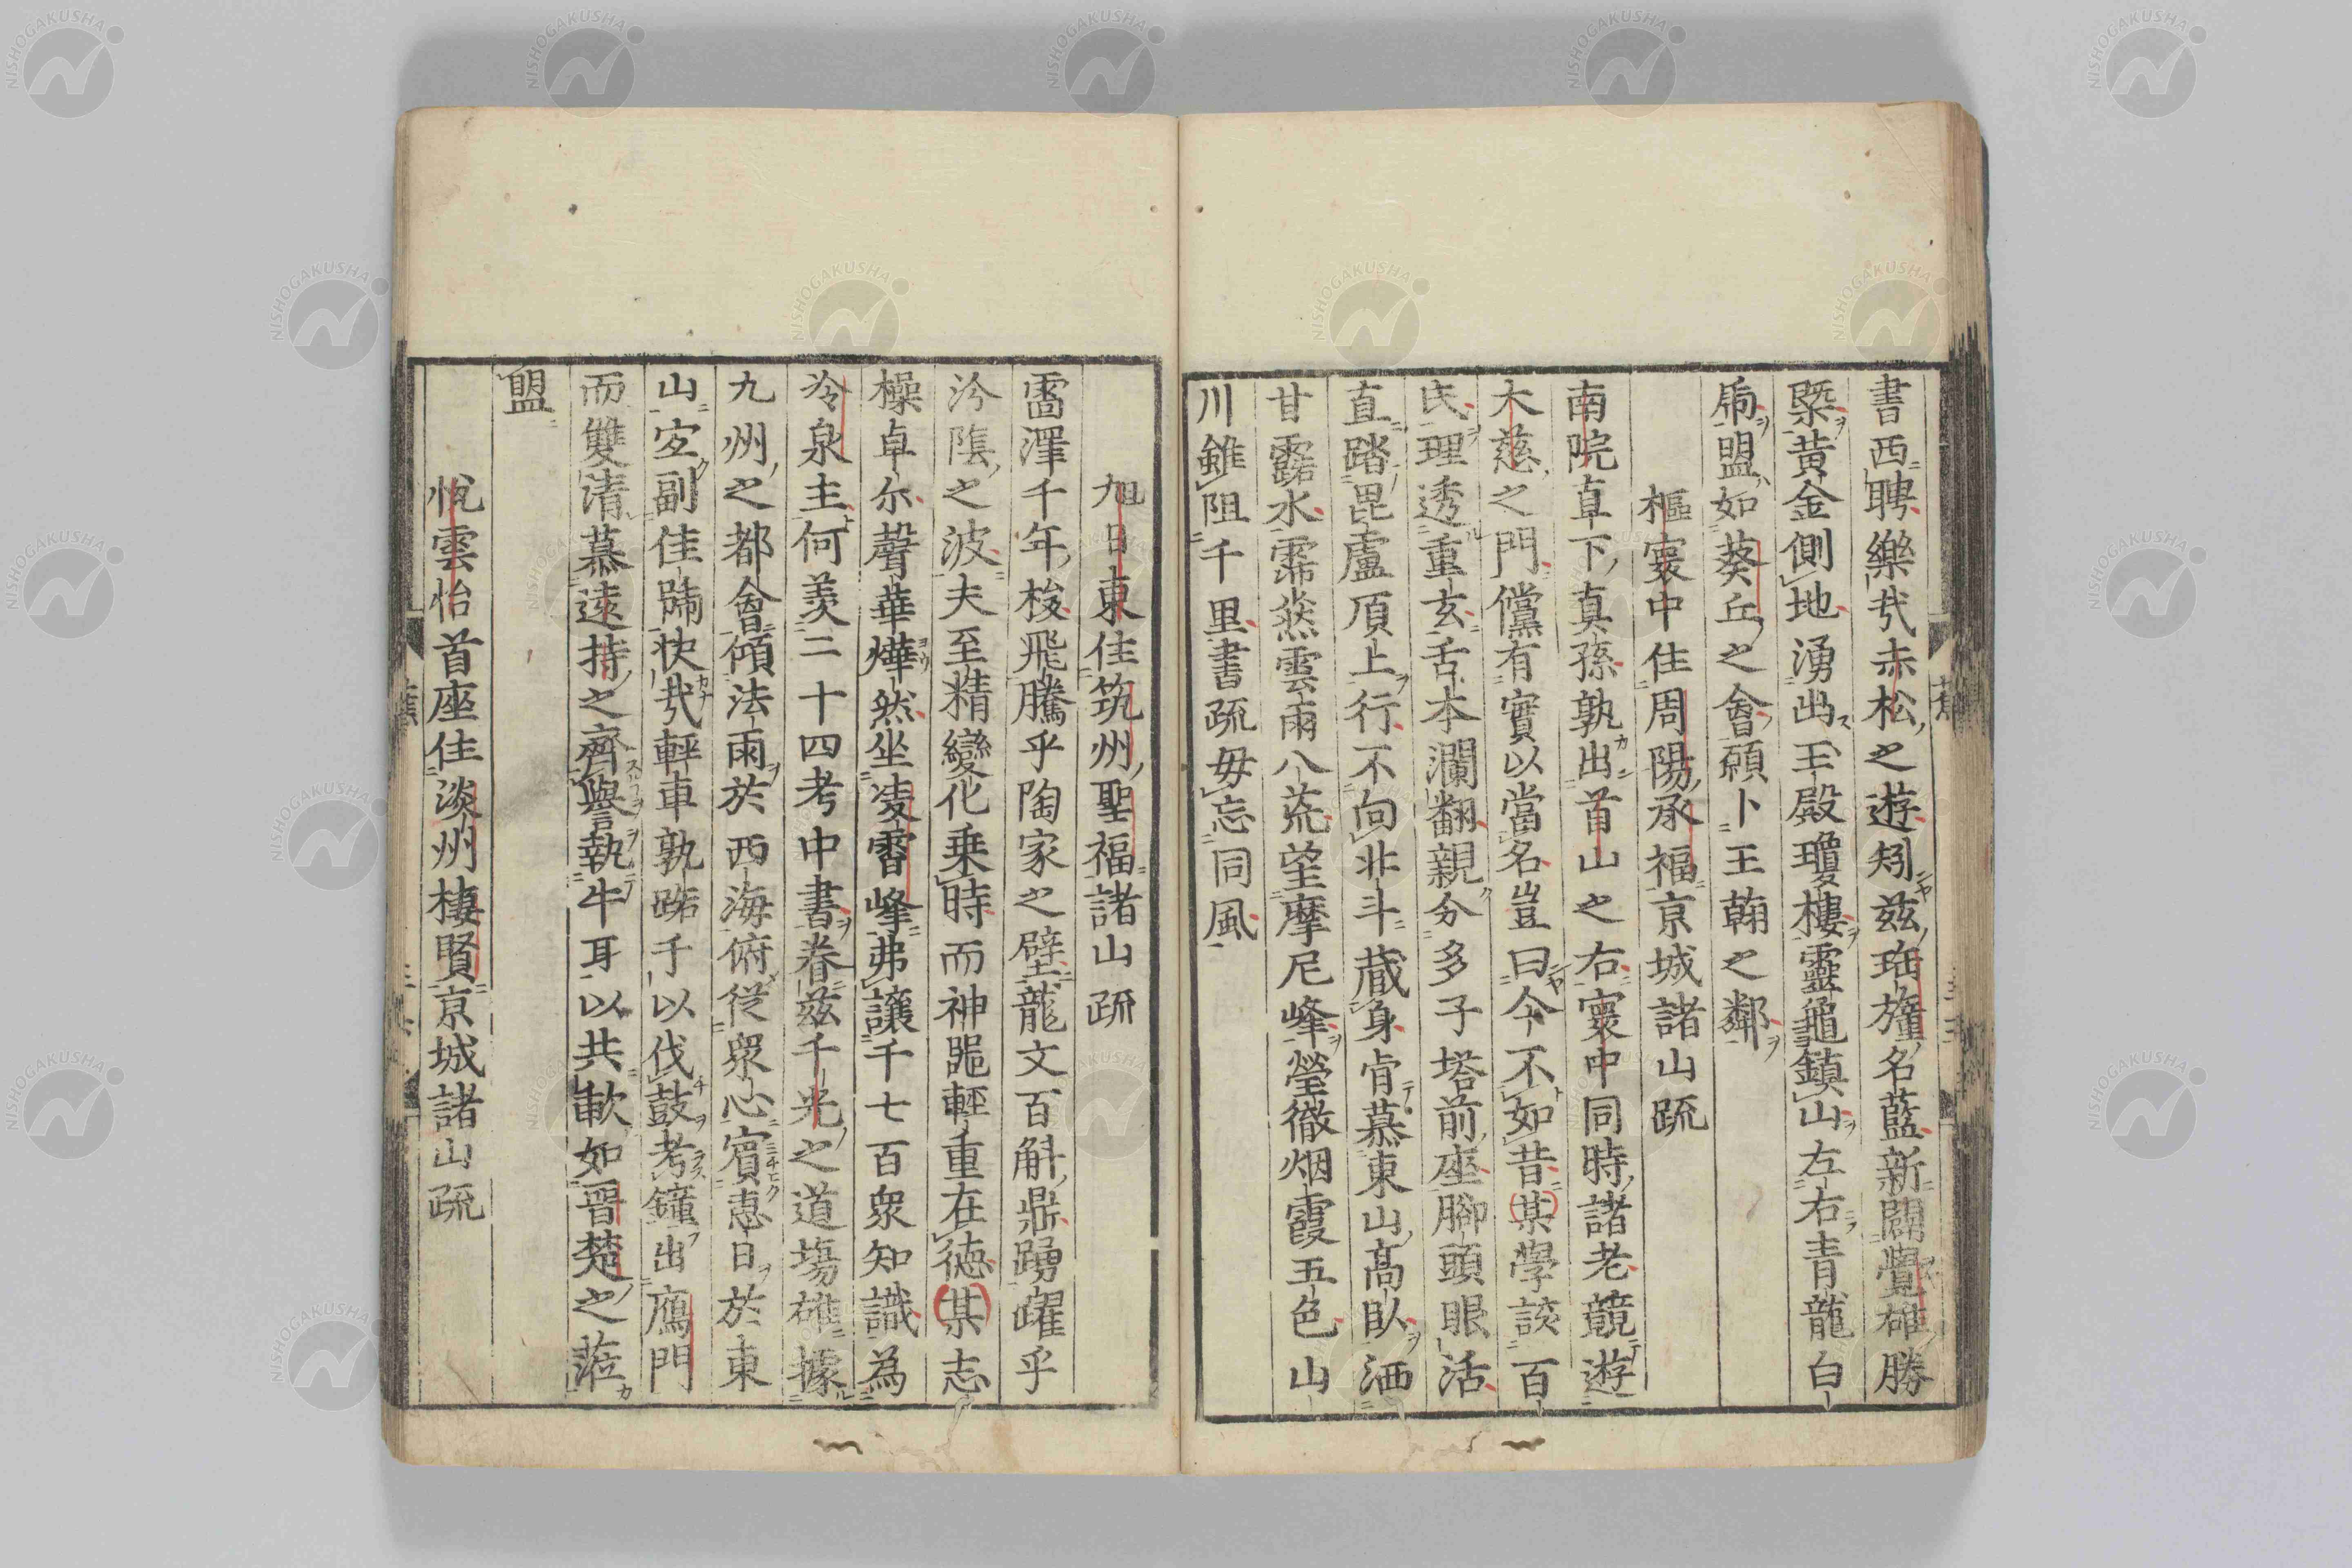 書西聘樂哉赤松之遊矧茲珤旜名藍新闢覺雄勝
槩黃金側地湧出玉殿瓊樓靈龜鎮山左右青龍白
乕盟如葵丘之會願卜王翰之鄰
樞寰中住周陽承福京城諸山疏
南院直下真孫孰出首山之右寰中同時諸老競遊
大慈之門儻有實以當名豈曰今不如昔某學談百
氏理透重玄舌本瀾翻親分多子塔前座腳頭眼活
直踏毘盧頂上行不向北斗藏身肯慕東山高臥洒
甘露水霈慈雲雨八荒望摩尼峰瑩徹烟霞五色山
川雖阻千里書疏毋忘同風
旭日東住筑州聖福諸山疏
雷澤千年梭飛騰乎陶家之壁龍文百斛鼎踴躍乎
汾陰之波夫至精變化乗時而神器輕重在德某志
操卓尔聲華燁然坐凌霄峰弗讓千七百衆知識為
冷泉主何羨二十四考中書眷茲千光之道場雄據
九州之都會傾法雨於西海俯從衆心賓惠日於東
山宏副佳蹄快哉輕車孰跖于以伐鼓考鐘出鴈門
而雙清慕遠持之齊譽執牛耳以共歃如晋楚之蒞
盟
悅雲怡首座住淡州棲賢京城諸山疏
蕉
NISHOGAKUSHA